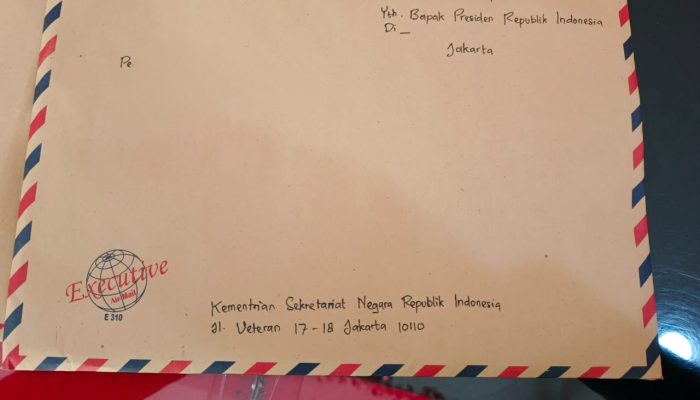 Yth. Bapak Presiden Republik Indonesia
Di _
Jakarta
Pe
Executive
Air Mail
E 310
Kementrian Sekretariat Negara Republik Indonesia
Jl. Veteran 17 - 18 Jakarta 10110